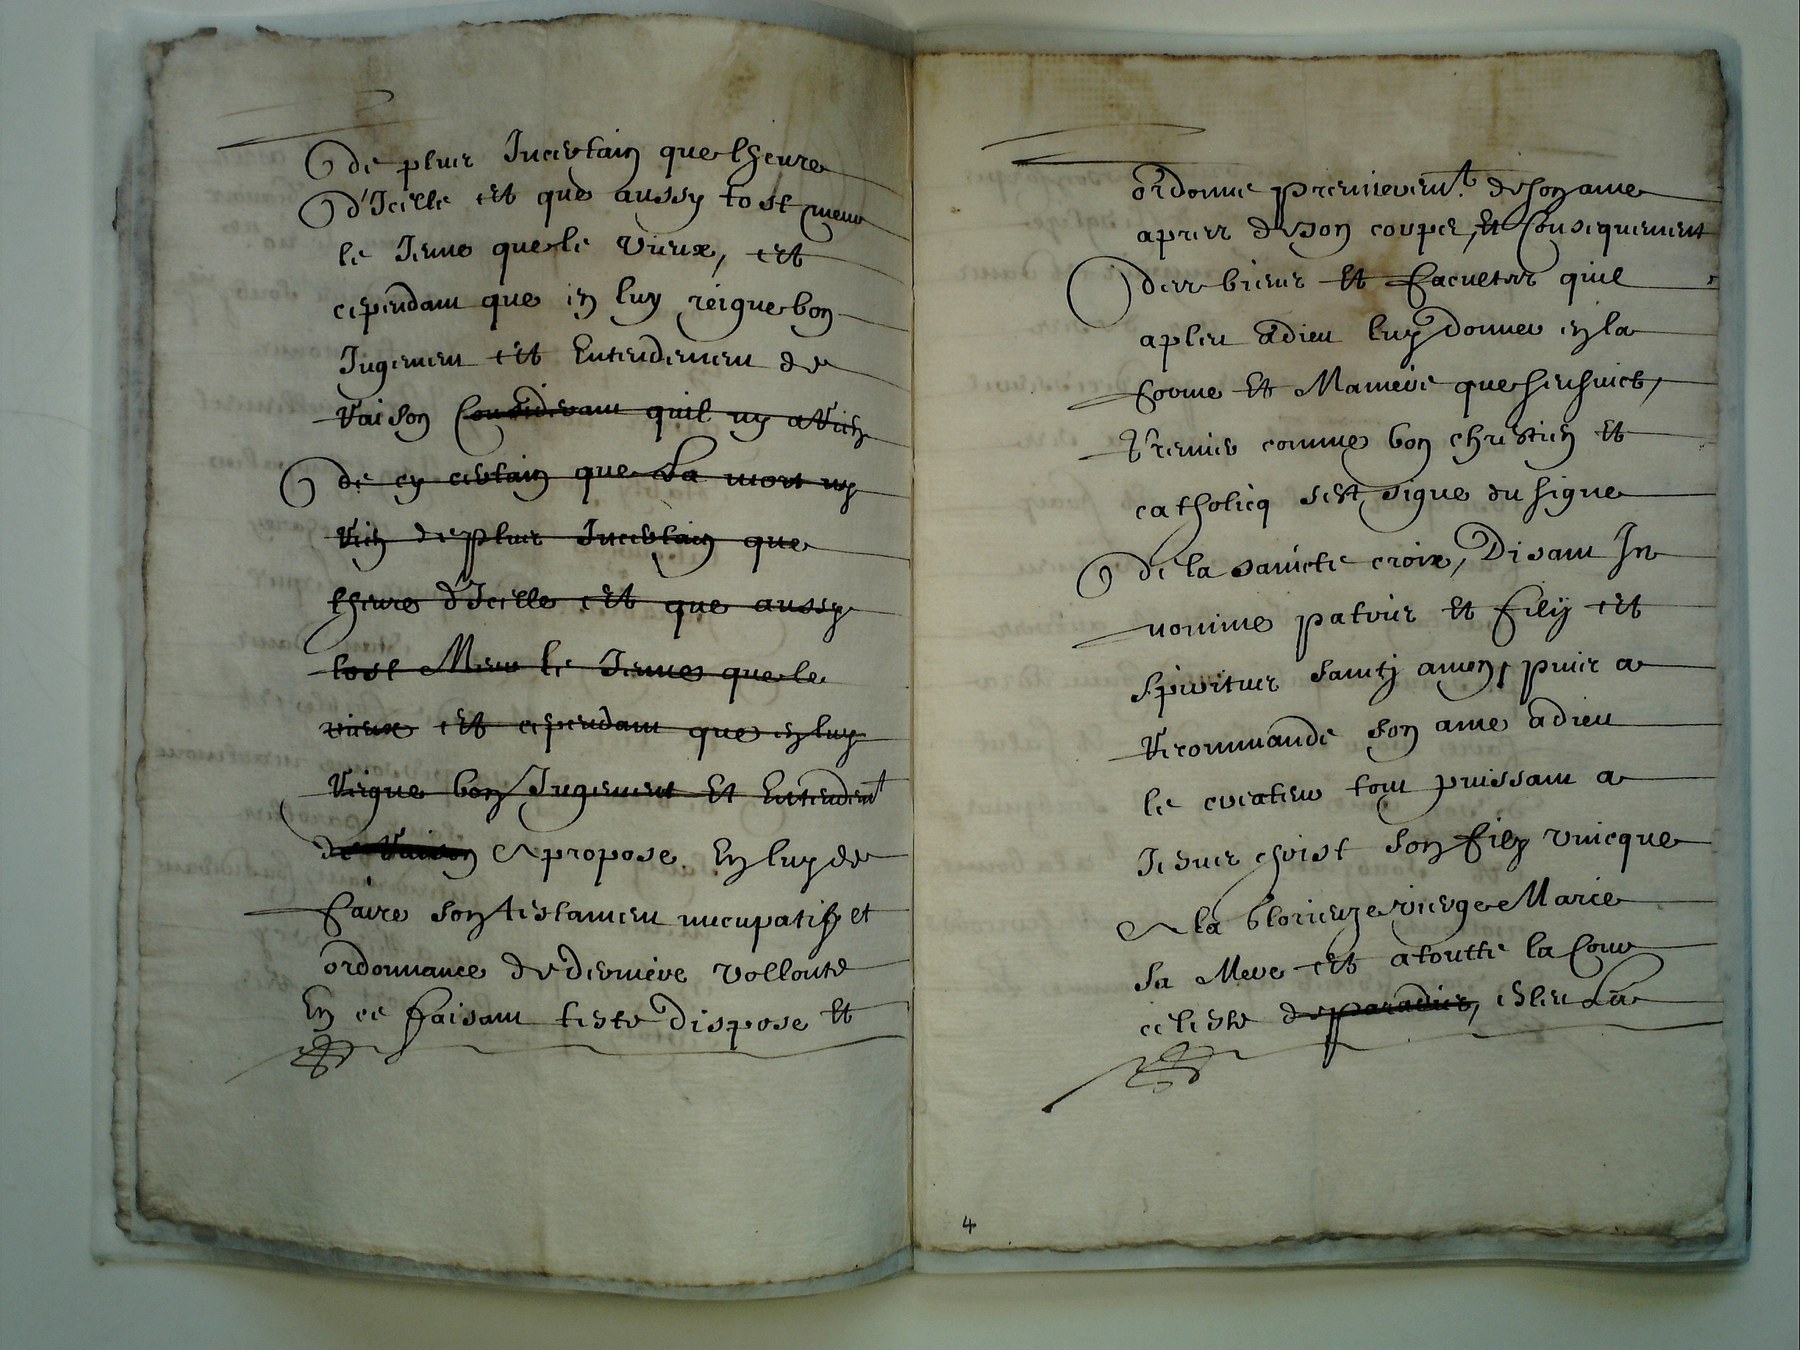 de plus Incertain que lheure
d'Icelle et que aussy tost meur
le Ieune que le vieux, et
cependant que en luy reigne bon
Jugement et Entendement de
Raison Considerant quil ny a Rien
de cy certain que La mort ny
Rien de plus Incertain que
lheure d'Icelle et que aussy
tost Meur le Ieune que le
vieux et cependant que en luy
Reigne bon Jugement Et Entendemt
de Raison a propose En luy de
faire son testament nucupatif et
ordonnance de derniere vollonte
En ce faisant teste dispose Et
ordonne premierement de son ame
apres de son corps, Et Consequement
des biens Et facultes quil
a pleu a dieu luy donner en la
forme Et Maniere que sensuict,
Premier comme bon chrestien Et
catholicq sest signe du signe
de la saincte croix, Disant In
nomine patris Et filij et
spiritus sancti amen, puis a
Recommande son ame a dieu
le createur tout puissant a
Iesus christ son filz vnicque
a la Glorieuze vierge Marie
sa Mere et a toutte la Cour
celeste de paradis, esleu La
4